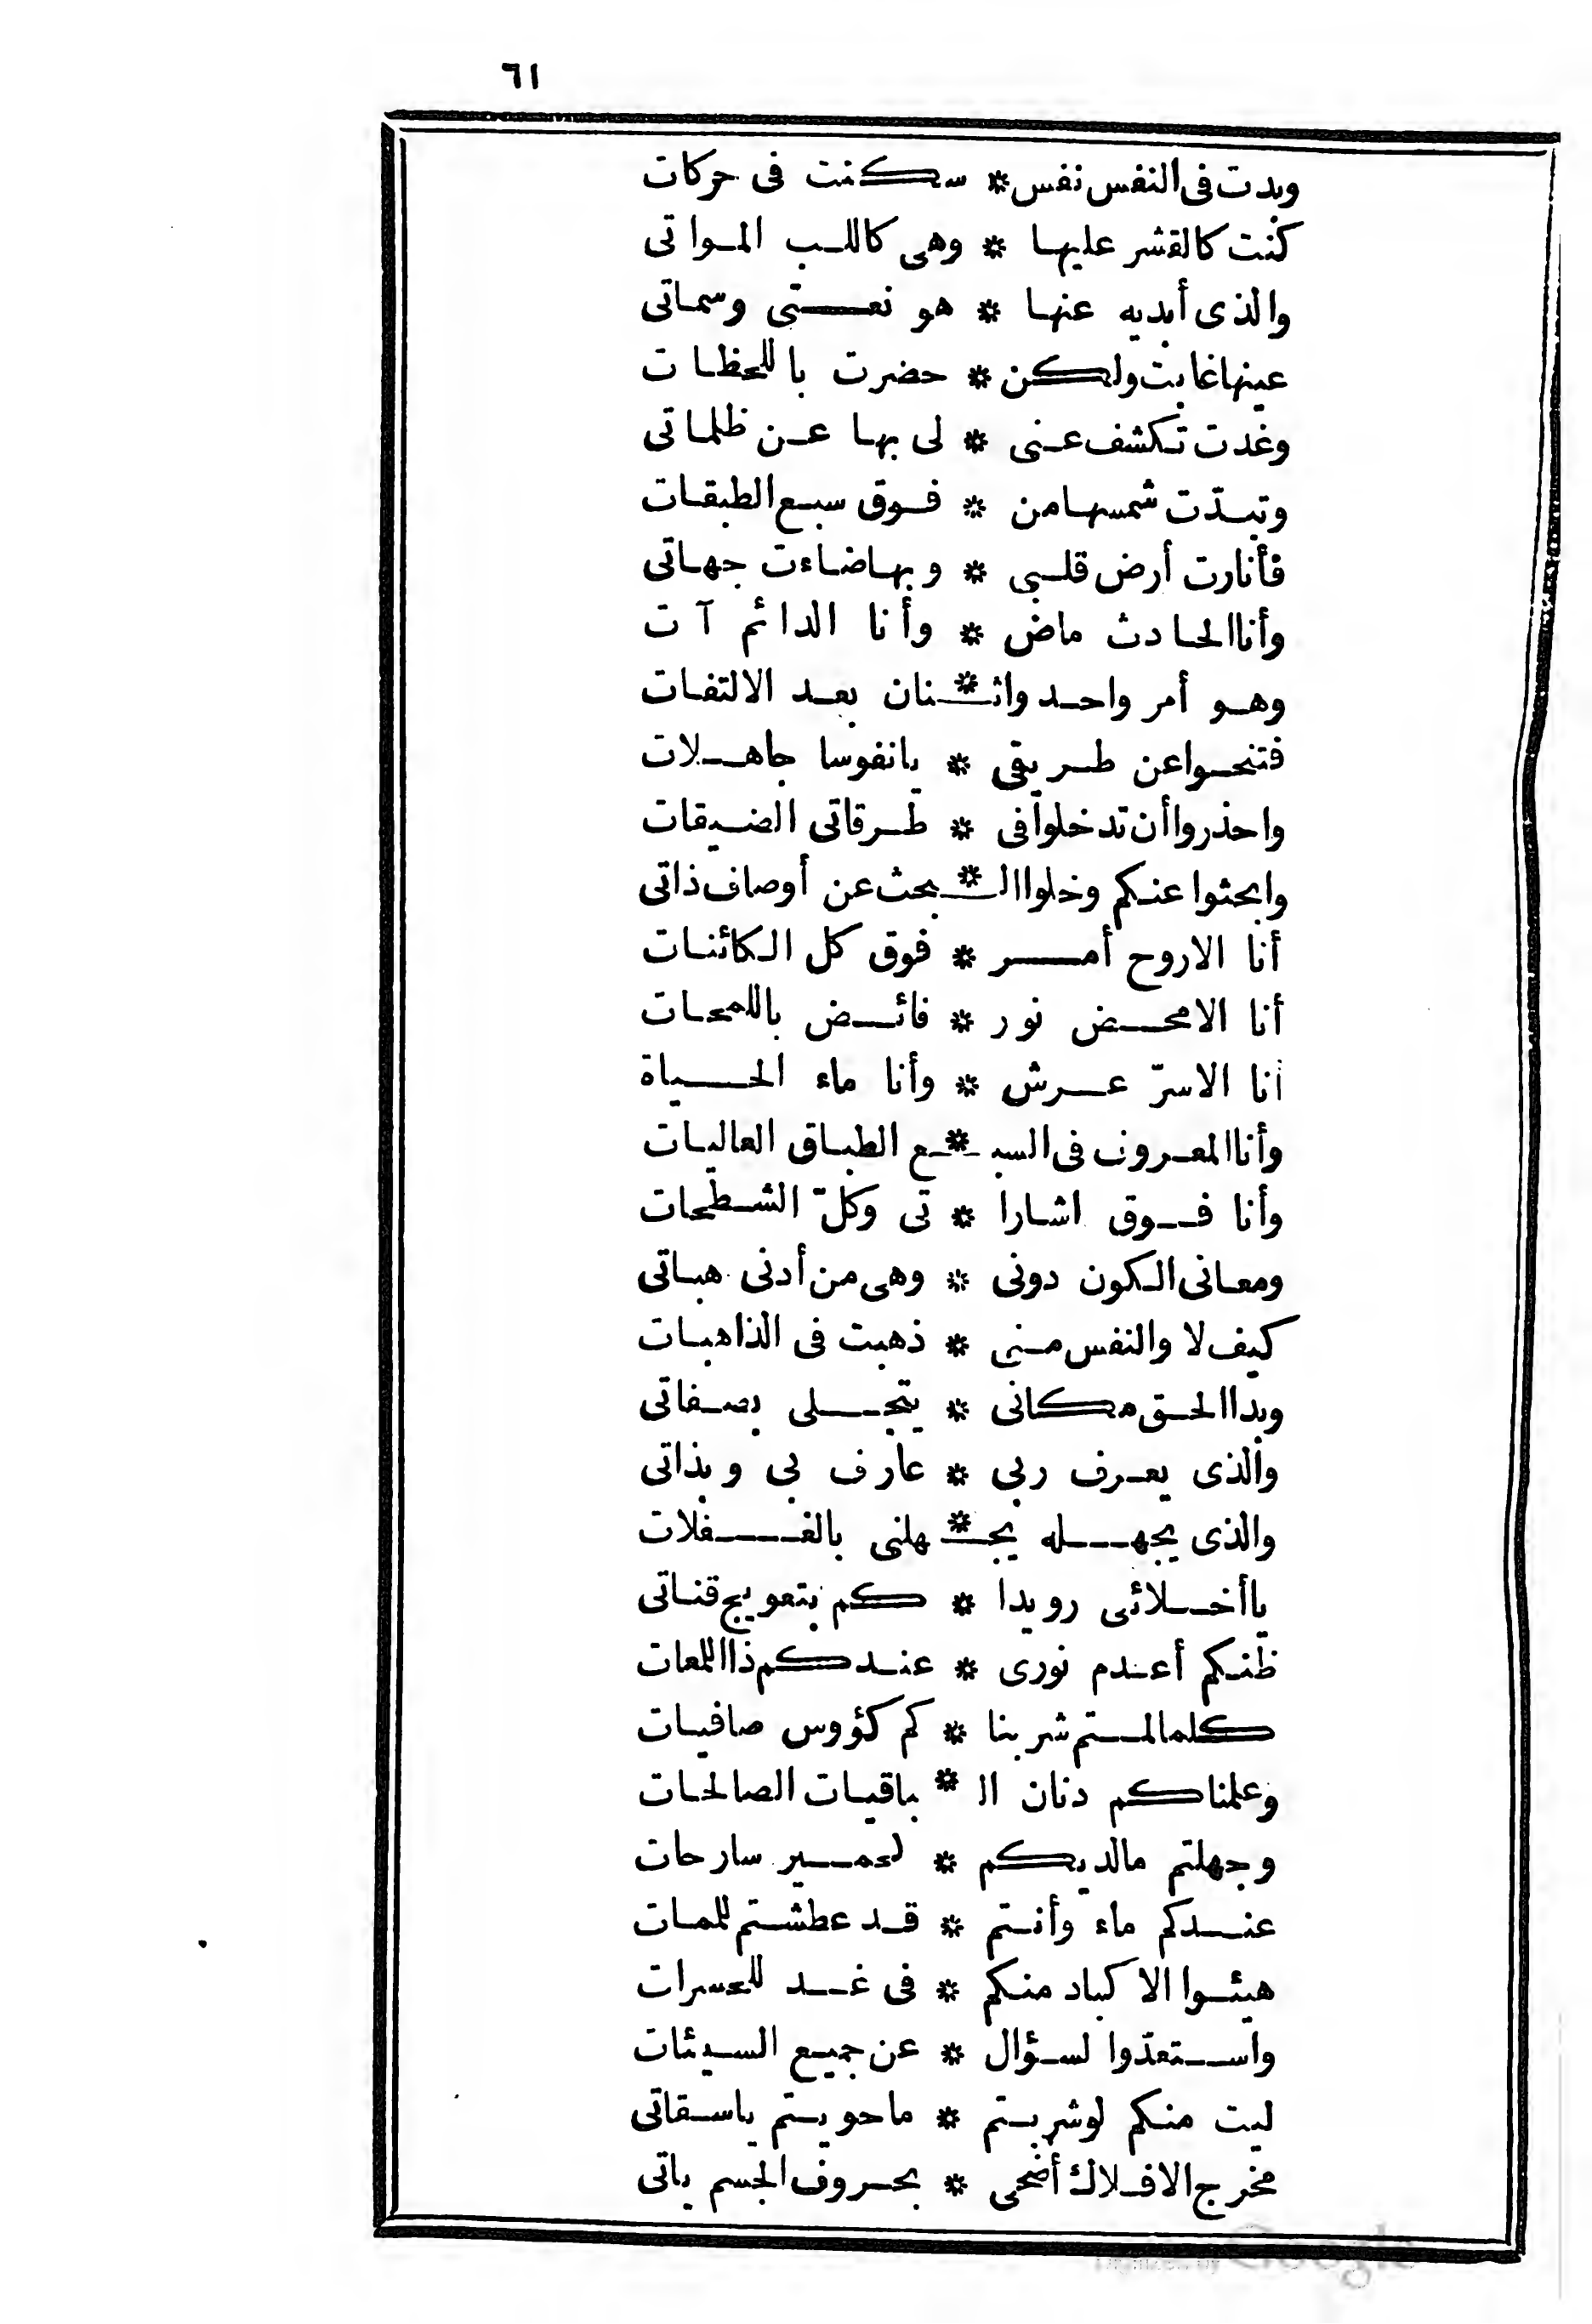 ٦١
وبدت فى النفس نفس * سكنت فى حركات
كنت كالقشر عليها * وهى كاللب المواتى
والذى أبديه عنها * هو نعتى وسماتى
عينها غابت ولكن * حضرت باللحظات
وغدت تكشف عنى * لى بها عن ظلماتى
وتبدّت شمسها من * فوق سبع الطبقات
فأنارت أرض قلبى * وبها ضاءت جهاتى
وأنا الحادث ماض * وأنا الدائم آت
وهو أمر واحد واثـ * ـنان بعد الالتفات
فتنحوا عن طريقى * يا نفوسا جاهلات
واحذروا أن تدخلوا فى * طرقاتى الضيقات
وابحثوا عنكم وخلوا الـ * ـبحث عن أوصاف ذاتى
أنا الا روح أمر * فوق كل الكائنات
أنا الا محض نور * فائض باللمحات
أنا الا سرّ عرش * وأنا ماء الحياة
وأنا المعروف فى السبـ * ـع الطباق العاليات
وأنا فوق اشارا * تى وكلّ الشطحات
ومعانى الكون دونى * وهى من أدنى هباتى
كيف لا والنفس منى * ذهبت فى الذاهبات
وبدا الحق مكانى * يتجلى بصفاتى
والذى يعرف ربى * عارف بى وبذاتى
والذى يجهله يجـ * ـهلنى بالغفلات
يا أخلائى رويدا * كم بتعويج قناتى
ظنكم أعدم نورى * عندكم ذا اللمعات
كلما لمتم شربنا * كم كؤوس صافيات
وعلمناكم دنان ال * باقيات الصالحات
وجهلتم ما لديكم * لحمير سارحات
عندكم ماء وأنتم * قد عطشتم للممات
هيئوا الاكباد منكم * فى غد للحسرات
واستعدّوا لسؤال * عن جميع السيئات
ليت منكم لو شربتم * ما حويتم يا سقاتى
مخرج الافلاك أضحى * بحروف الجسم ياتى
Digitized by Google